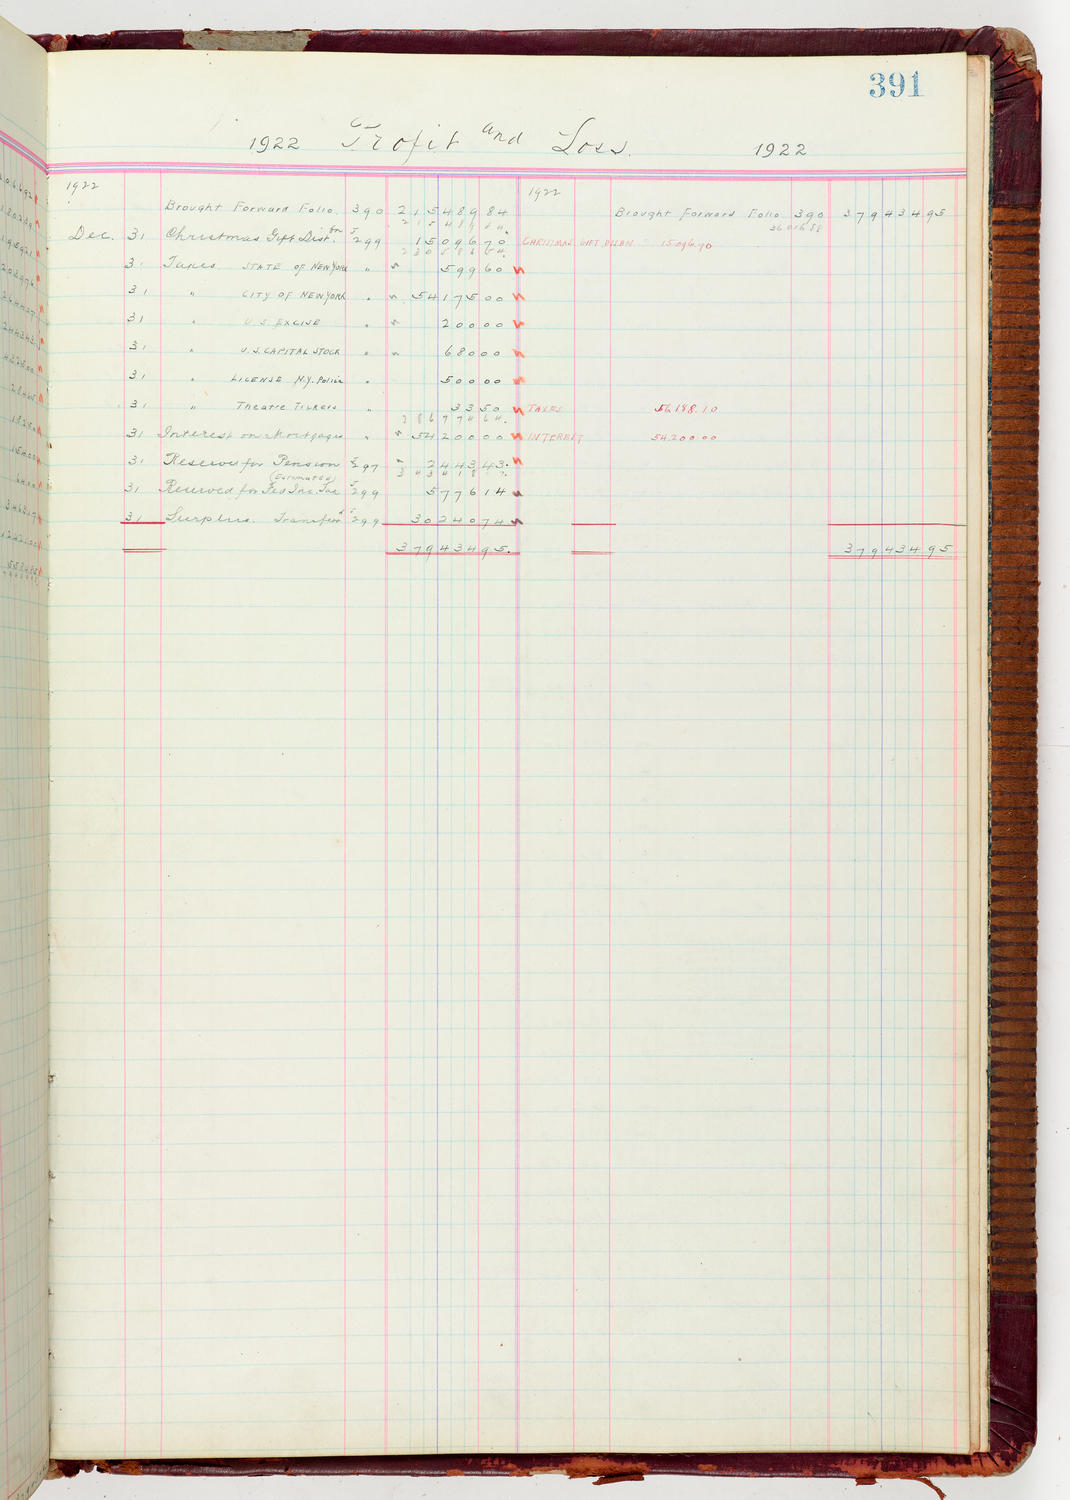 391
1922 Profit and Loss. 1922
1922 1922
Brought Forward Folio. 390 215489 84 Brought Forward Folio 390 379434 95
215489 84. 36016 88
Dec. 31 Christmas Gift Distbn J299 15096 70 CHRISTMAS GIFT DISBN 15096.70
230586 54.
31 Taxes STATE OF NEW YORK " " 599 60
31 " CITY OF NEW YORK " " 54175 00
31 " U.S. EXCISE " " 200 00
31 " U.S. CAPITAL STOCK " " 680 00
31 " LICENSE N.Y. Police " 500 00
31 " Theatre Tickets " 33 50 TAXES 56188.10
286774 64.
31 Interest on Mortgages " " 54200 00 INTEREST 54200 00
31 Reserve for Pension J297 2443 43.
(Estimated) 343418 07.
31 Reserved for Fed Inc. Tax J299 5776 14
31 Surplus. Transferd J299 30240 74
379434 95. 379434 95